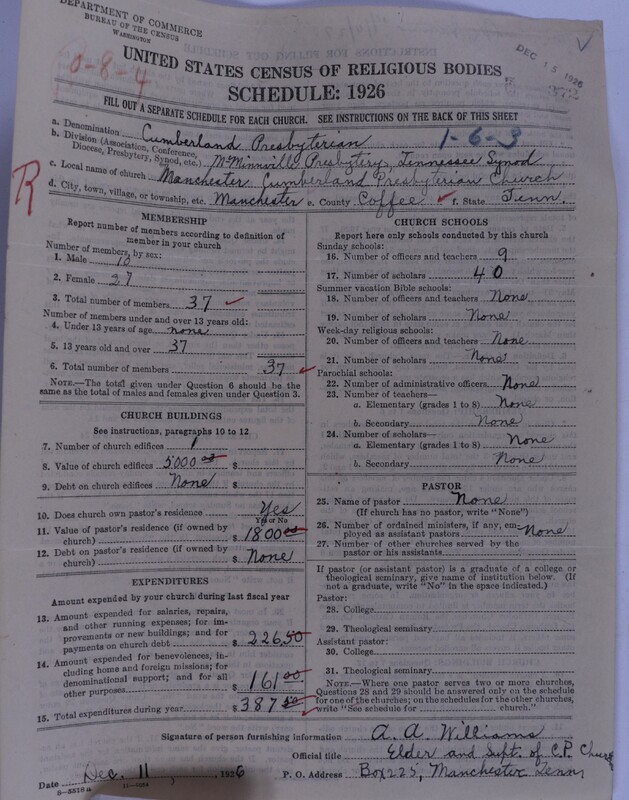 DEPARTMENT OF COMMERCE
BUREAU OF THE CENSUS
WASHINGTON
DEC 15 1926
8-8-4
UNITED STATES CENSUS OF RELIGIOUS BODIES
SCHEDULE: 1926
FILL OUT A SEPARATE SCHEDULE FOR EACH CHURCH. SEE INSTRUCTIONS ON THE BACK OF THIS SHEET
a. Denomination Cumberland Presbyterian 1-6-3
b. Division (Association, Conference, Diocese, Presbytery, Synod, etc.) McMinnville Presbytery, Tennessee Synod
c. Local name of church Manchester Cumberland Presbyterian Church
d. City, town, village, or township, etc. Manchester e. County Coffee f. State Tenn.
R
MEMBERSHIP
Report number of members according to definition of member in your church
Number of members, by sex:
1. Male 10
2. Female 27
3. Total number of members 37
Number of members under and over 13 years old:
4. Under 13 years of age none
5. 13 years old and over 37
6. Total number of members 37
NOTE.—The total given under Question 6 should be the same as the total of males and females given under Question 3.
CHURCH BUILDINGS
See instructions, paragraphs 10 to 12
7. Number of church edifices 1
8. Value of church edifices 5000 $
9. Debt on church edifices None $
10. Does church own pastor's residence Yes
Yes or No
11. Value of pastor's residence (if owned by church) $ 1800
12. Debt on pastor's residence (if owned by church) $ None
EXPENDITURES
Amount expended by your church during last fiscal year
13. Amount expended for salaries, repairs, and other running expenses; for improvements or new buildings; and for payments on church debt $ 226.50
14. Amount expended for benevolences, including home and foreign missions; for denominational support; and for all other purposes $ 161 00
15. Total expenditures during year $ 387 50
CHURCH SCHOOLS
Report here only schools conducted by this church
Sunday schools:
16. Number of officers and teachers 9
17. Number of scholars 40
Summer vacation Bible schools:
18. Number of officers and teachers None
19. Number of scholars None
Week-day religious schools:
20. Number of officers and teachers None
21. Number of scholars None
Parochial schools:
22. Number of administrative officers None
23. Number of teachers—
a. Elementary (grades 1 to 8) None
b. Secondary None
24. Number of scholars—
a. Elementary (grades 1 to 8) None
b. Secondary None
PASTOR
25. Name of pastor None
(If church has no pastor, write "None")
26. Number of ordained ministers, if any, employed as assistant pastors None
27. Number of other churches served by the pastor or his assistants
If pastor (or assistant pastor) is a graduate of a college or theological seminary, give name of institution below. (If not a graduate, write "No" in the space indicated.)
Pastor:
28. College
29. Theological seminary
Assistant pastor:
30. College
31. Theological seminary
NOTE.—Where one pastor serves two or more churches, Questions 28 and 29 should be answered only on the schedule for one of the churches; on the schedules for the other churches, write "See schedule for church."
Signature of person furnishing information A. A. Williams
Official title Elder and Supt. of C.P. Church
Date Dec. 11, 1926 P. O. Address Box 225, Manchester Tenn
8-5518 a